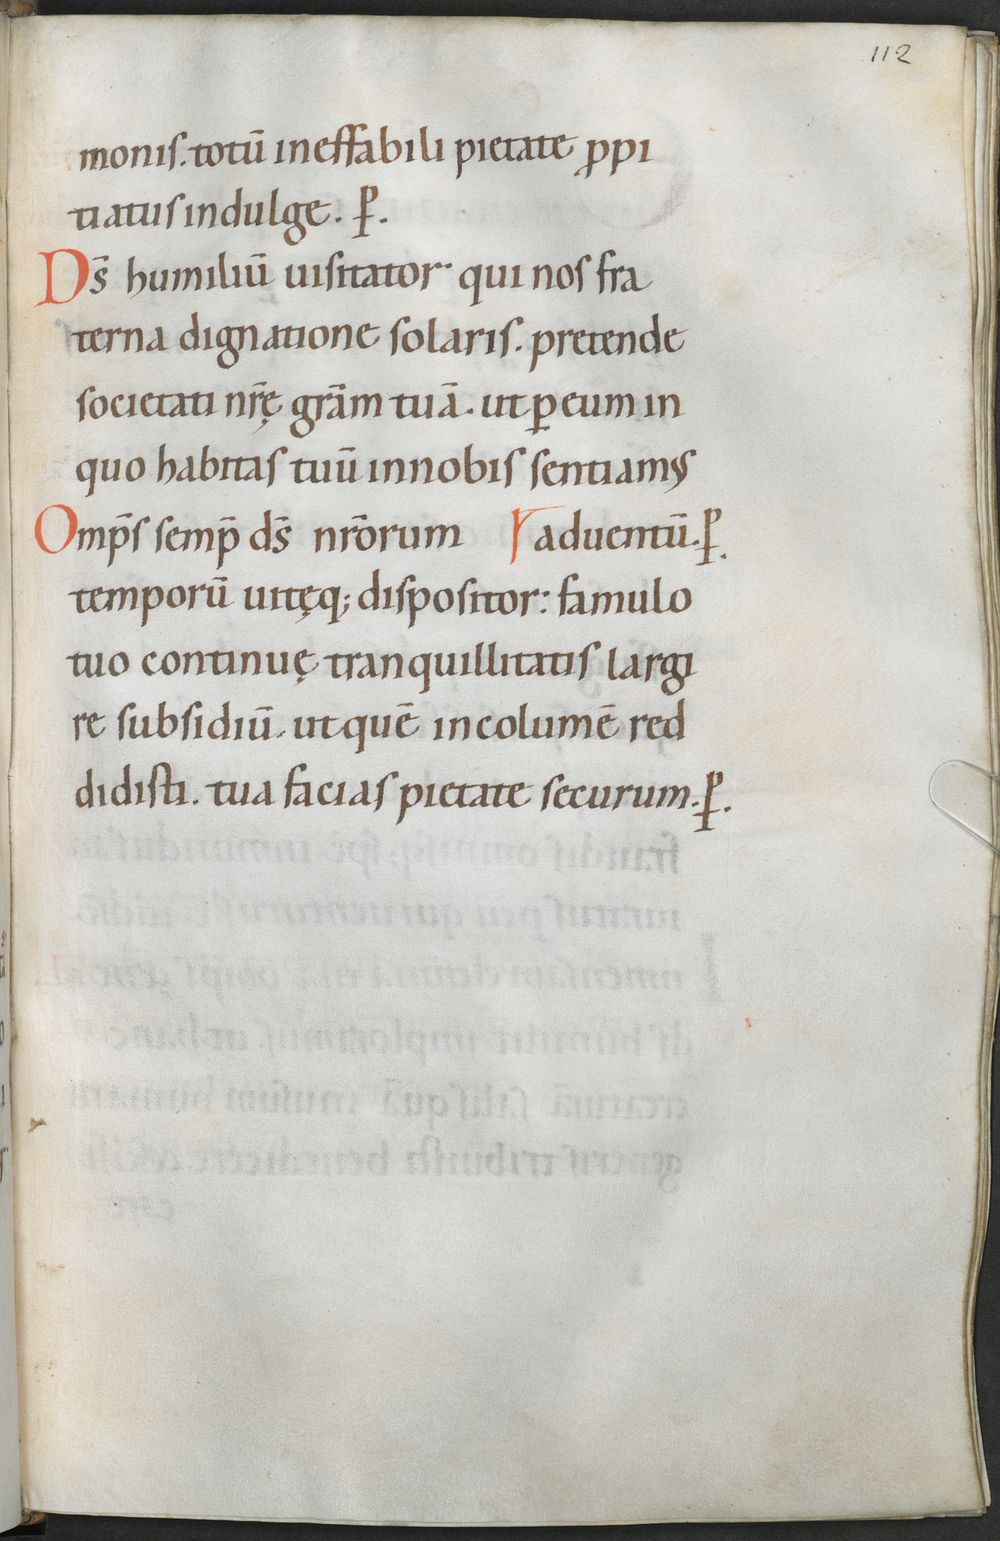 112
monis. totū ineffabili pietate ꝓpi
tiatus indulge. P̲.
Ds̄ humiliū uisitator qui nos fra
terna dignatione solaris. pretende
societati nr̄ę grām tuā. ut ꝑ eum in
quo habitas tuū in nobis sentiamus
Omp̄s semp̄ ds̄ nr̄orum aduentū. P̲.
temporū uitęq; dispositor: famulo
tuo continuę tranquillitatis largi
re subsidiū. ut quē incolumē red
didisti. tua facias pietate securum. P̲.